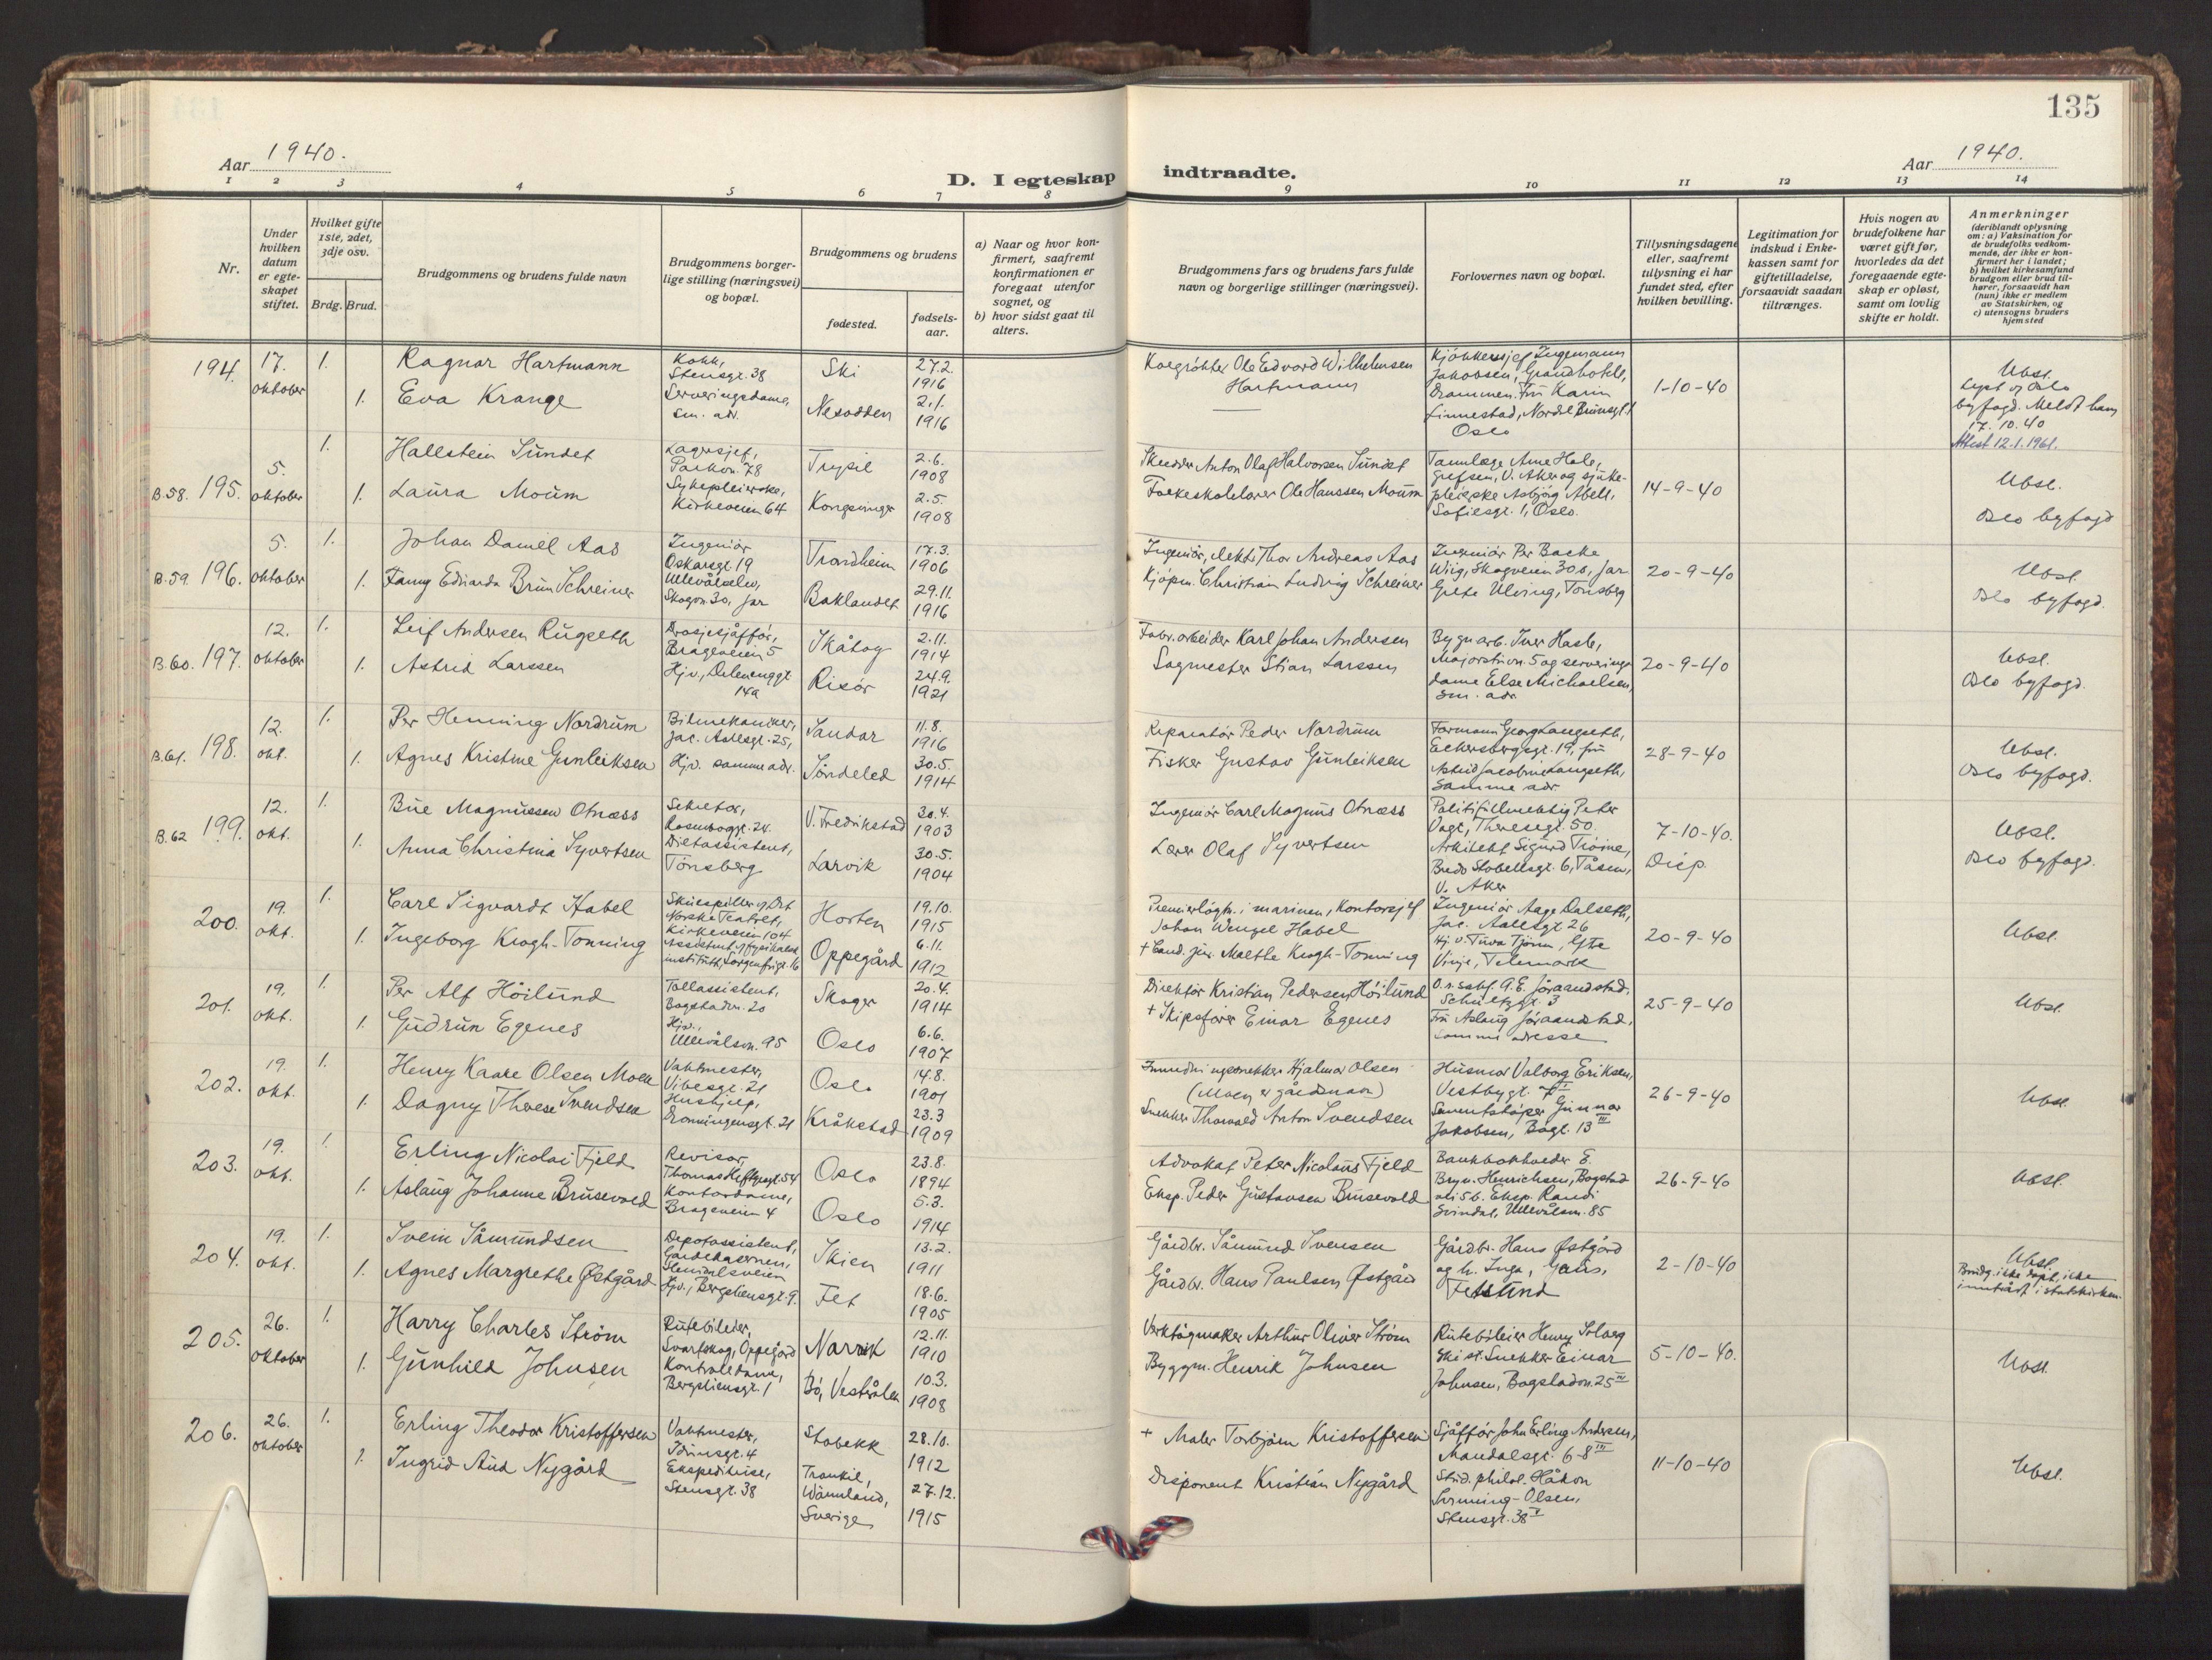 135
Aar 1940.
D. I egteskap indtraadte.
Aar 1940.
1 2 3 4 5 6 7 8 9 10 11 12 13 14
Nr.
Under hvilken datum er egteskapet stiftet.
Hvilket gifte 1ste, 2det, 3dje osv.
Brdg. Brud.
Brudgommens og brudens fulde navn
Brudgommens borgerlige stilling (næringsvei) og bopæl.
Brudgommens og brudens
fødested.
fødselsaar.
a) Naar og hvor konfirmert, saafremt konfirmationen er foregaat utenfor sognet, og
b) hvor sidst gaat til alters.
Brudgommens fars og brudens fars fulde navn og borgerlige stillinger (næringsvei).
Forlovernes navn og bopæl.
Tillysningsdagene eller, saafremt tillysning ei har fundet sted, efter hvilken bevilling.
Legitimation for indskud i Enkekassen samt for giftetilladelse, forsaavidt saadan tiltrænges.
Hvis nogen av brudefolkene har været gift før, hvorledes da det foregaaende egteskap er opløst, samt om lovlig skifte er holdt.
Anmerkninger
(deriblandt oplysning om: a) Vaksination for de brudefolks vedkommende, der ikke er konfirmert her i landet;
b) hvilket kirkesamfund brudgom eller brud tilhører, forsaavidt han (hun) ikke er medlem av Statskirken, og
c) utensogns bruders hjemsted
194. 17. oktober 1. Ragnar Hartmann
Kokk, Stensgt. 38
Ski 27.2. 1916
1. Eva Krange
Serveringsdame, sm. adr.
Nesodden 2.1. 1916
Ole Edvard Wilhelmsen Hartmann
Kjøkkensjef Ingemann Jakobsen, Grandhotell, Drammen. Fru Karin Linnestad, Nordal Brunsgt. 1 Oslo
1-10-40
Ubst.
Lyst og Oslo byfogd. Meldt ham 17.10.40
Attest 12.1.1961.
B.58. 195. 5. oktober 1. Hallstein Sundet
Lagersjef, Parkvn. 78
Trysil 2.6. 1908
1. Laura Moum
Sykepleierske, Kirkeveien 64
Kongsvinger 2.5. 1908
Skredder Anton Olaf Halvorsen Sundet
Folkeskolelærer Ole Hanssen Moum
Tannlæge Arne Hole, Grefsen, V. Aker og sykepleierske Asbjørg Abell, Sofiesgt. 1, Oslo.
14-9-40
Ubst.
Oslo byfogd
B.59. 196. 5. oktober 1. Johan Daniel Aas
Ingeniør Oskarsgt. 19
Trondheim 17.3. 1906
1. Fanny Edvarda Brun Schreiner
Skogvn. 30, Jar
Baklandet 29.11. 1916
Ingeniør, Thor Andreas Aas
Kjøpm. Christian Ludvig Schreiner
Ingeniør Per Backe Wiig, Skogveien 30b, Jar
Grete Ulving, Tønsberg
20-9-40
Ubst.
Oslo byfogd.
B.60. 197. 12. oktober 1. Leif Andersen Rugseth
Drosjesjåffør, Brageveien 5
Skåtøy 2.11. 1914
1. Astrid Larssen
Hjv., Delenenggt. 14a
Risør 24.9. 1921
Fabr.arbeider Karl Johan Andersen
Sagmester Stian Larssen
Bygn.arb. Iver Hasle, Majorstuvn. 5 og serveringsdame Else Michaelsen, sm. adr.
20-9-40
Ubst.
Oslo byfogd.
B.61. 198. 12. okt. 1. Per Henning Nordrum
Bilmekaniker, Jac. Aallsgt. 25,
Sandar 11.8. 1916
1. Agnes Kristine Gunleiksen
Hjv. samme adr.
Søndeled 30.5. 1914
Reparatør Peder Nordrum
Fisker Gustav Gunleiksen
Formann Georg Langseth, Eckersbergsgt. 19, fru Astrid Jacobine Langseth, Samme adr.
28-9-40
Ubst.
Oslo byfogd.
B.62 199. 12. okt. 1. Bue Magnussen Otnæss
Rosenborggt. 24.
V. Fredrikstad 30.4. 1903
1. Anna Christina Syvertsen
Dietassistent, Tønsberg
Larvik 30.5. 1904
Ingeniør Carl Magnus Otnæss
Lærer Olaf Syvertsen
Politifullmektig Peter Vogt, Theresegt. 50.
Arkitekt Sigurd Tiöme, Bredo Stabellsgt. 6, Tåsen, V. Aker
7-10-40.
Disp.
Ubst.
Oslo byfogd.
200. 19. okt. 1. Carl Sigvardt Habel
Skuespiller v. Det Norske Teatret, Kirkeveien 104
Horten 19.10. 1915
1. Ingeborg Krogh-Tonning
Assistent v. fysikalsk institutt, Sorgenfrigt. 16
Oppegård 6.11. 1912
Premierløytn. i marinen, Kontorsjef Johan Wenzel Habel
+ Cand. jur. Malthe Krogh-Tonning
Ingeniør Aage Dalseth, Jac. Aallsgt 26
Hj. v. Tuva Tjönn, Ytre Vinje, Telemark
20-9-40
Ubst.
201. 19. okt. 1. Per Alf Höilund
Tollassistent, Bogstadvn. 20
Skoger 20.4. 1914
1. Gudrun Egenes
Hjv., Ullevålsvn. 95
Oslo 6.6. 1907
Direktør Kristian Pedersen Höilund
+ Skipsfører Einar Egenes
O.r.sakf. G.E. Jöraandstad, Schultzgt. 3
Fru Aslaug Jöraandstad, samme adresse
25-9-40
Ubst.
202. 19. okt. 1. Henry Kaare Olsen Moen
Vaktmester, Vibesgt. 21
Oslo 14.8. 1901
1. Dagny Therese Svendsen
Hushjelp, Dronningensgt. 21
Kråkstad 23.3 1909
Hjalmar Olsen
(Moen er gårdsnavn)
Snekker Thorvald Anton Svendsen
Husmor Valborg Eriksen, Vestbygt. 7 II
Sementstøper Gunnar Jakobsen, Bogt. 13 III
26-9-40
Ubst.
203. 19. okt. 1. Erling Nicolai Fjeld
Revisor, Thomas Heftyesgt. 54
Oslo 23.8. 1894
1. Aslaug Johanne Brusevold
Kontordame, Brageveien 4
Oslo 5.3. 1914
Advokat Peter Nicolaus Fjeld
Eksp. Peder Gustavsen Brusevold
Bankbokholder E. Bryn. Henrichsen, Bogstad
Eksp. Randi Svindal, Ullevålsvn. 85
26-9-40
Ubst.
204. 19. okt. 1. Svein Såmundsen
Depotassistent, Gardekasernen,
Skien 13.2. 1911
1. Agnes Margrethe Østgård
Hjv., Bergsliensgt. 9.
Fet 18.6. 1905
Gårdbr. Såmund Svensen
Gårdbr. Hans Paulsen Østgård
Gårdbr. Hans Østgård og h. Inga, Gaus, Fetsund
2-10-40
Ubst.
Brudg. ikke døpt, ikke inntrådt i statskirken.
205. 26. oktober 1. Harry Charles Ström
Rutebileier, Svartskog, Oppegård
Narvik 12.11. 1910
1. Gunhild Johnsen
Kontrolldame, Bergsliensgt. 1
Bø, Vesterålen 10.3. 1908
Verktøymaker Arthur Oliver Strøm
Byggm. Henrik Johnsen
Rutebileier Henry Solberg Ski st. Snekker Einar Johnsen, Bogstadvn. 25 III
5-10-40.
Ubst.
206. 26. oktober 1. Erling Theodor Kristoffersen
Vaktmester, Idunsgt. 4
Stabekk 28.10. 1912
1. Ingrid Aud Nygård
Ekspeditrise, Stensgt. 38
Trankil, Wärmland, Sverige 27.12. 1915
+ Maler Torbjørn Kristoffersen
Disponent Kristian Nygård
Sjåffør John Erling Andersen, Mandalsgt. 6-8 III
Stud. philol. Håkon Sørmning-Olsen, Stensgt. 38 V
11-10-40
Ubst.